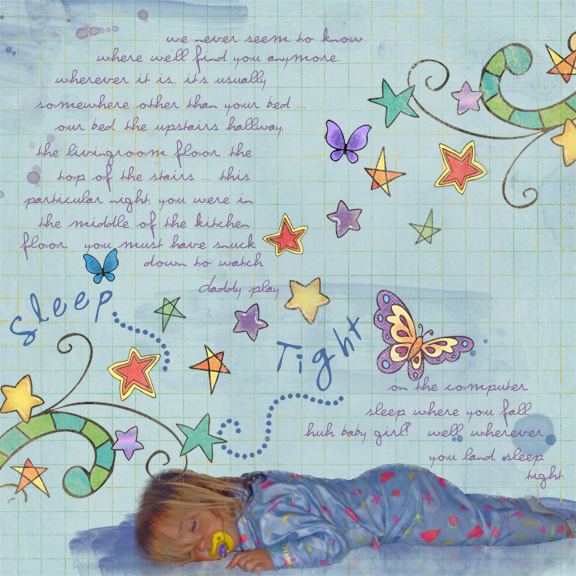 we never seem to know
where we'll find you anymore..
wherever it is, it's usually
somewhere other than your bed ...
our bed the upstairs hallway,
the livingroom floor, the
top of the stairs ... this
particular night you were in
the middle of the kitchen
floor. you must have snuck
down to watch
daddy play
Sleep
Tight
on the computer
sleep where you fall
huh baby girl? well wherever
you land, sleep
tight.